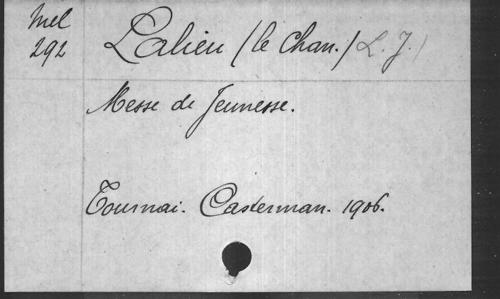 Mel
292
Lalieu (le Chan.) L. J.)
Messe de Jeunesse.
Tournai. Casterman. 1906.